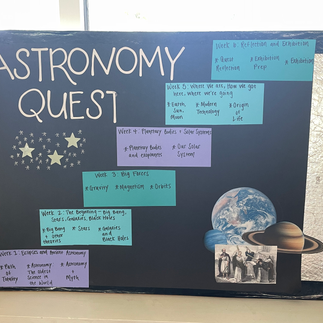 ASTRONOMY
QUEST
Week 6: Reflection and Exhibition
* Quest
Reflection
* Exhibition
Prep
* Exhibition
Week 5: Where we are, How we got
here, Where we're going
* Earth,
Sun,
Moon
* Modern
Technology
* Origin
of
Life
Week 4: Planetary Bodies + Solar Systems
* Planetary Bodies
and exoplanets
* Our Solar
System
Week 3: Big Forces
* Gravity
* Magnetism
* Orbits
Week 2: The Beginning - Big Bang,
Stars, Galaxies, Black Holes
* Big Bang
+ other
theories
* Stars
* Galaxies
and
Black Holes
Week 1: Eclipses and Ancient Astronomy
* Path
of
Totality
* Astronomy:
The Oldest
Science in
the World
* Astronomy
+
Myth